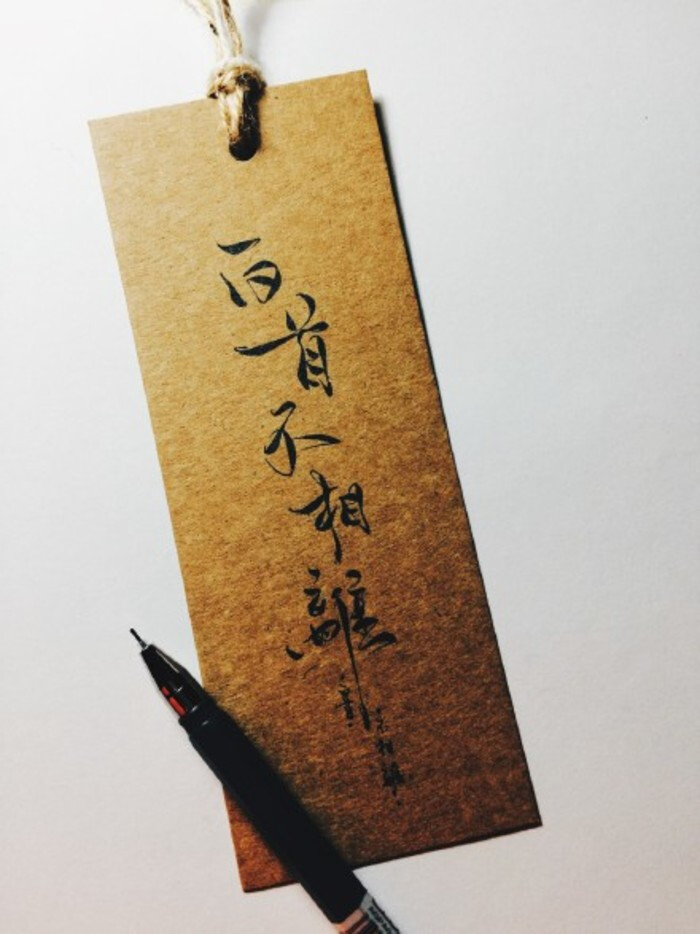 白首不相離